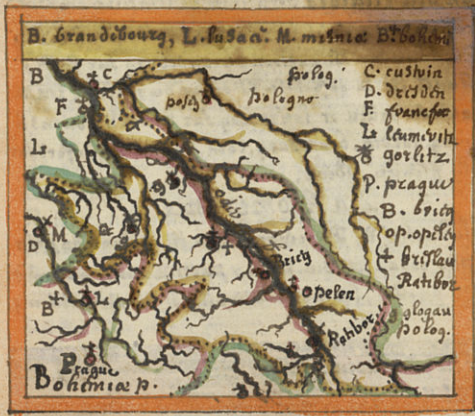 B. brandebourg, L. lusac. M. misniæ B. bohemi
B
C
F
L
D
M
B
L
Polog.
posch
pologno
oder
g
Brieg
opelen
Ratibor
Prague
Bohemiæ p.
C. custrin
D. dresden
F. francfor
L. leumevitz
gorlitz
P. prague
B. brieg
op. opelen
brislau
Ratibor
glogau
Polog.